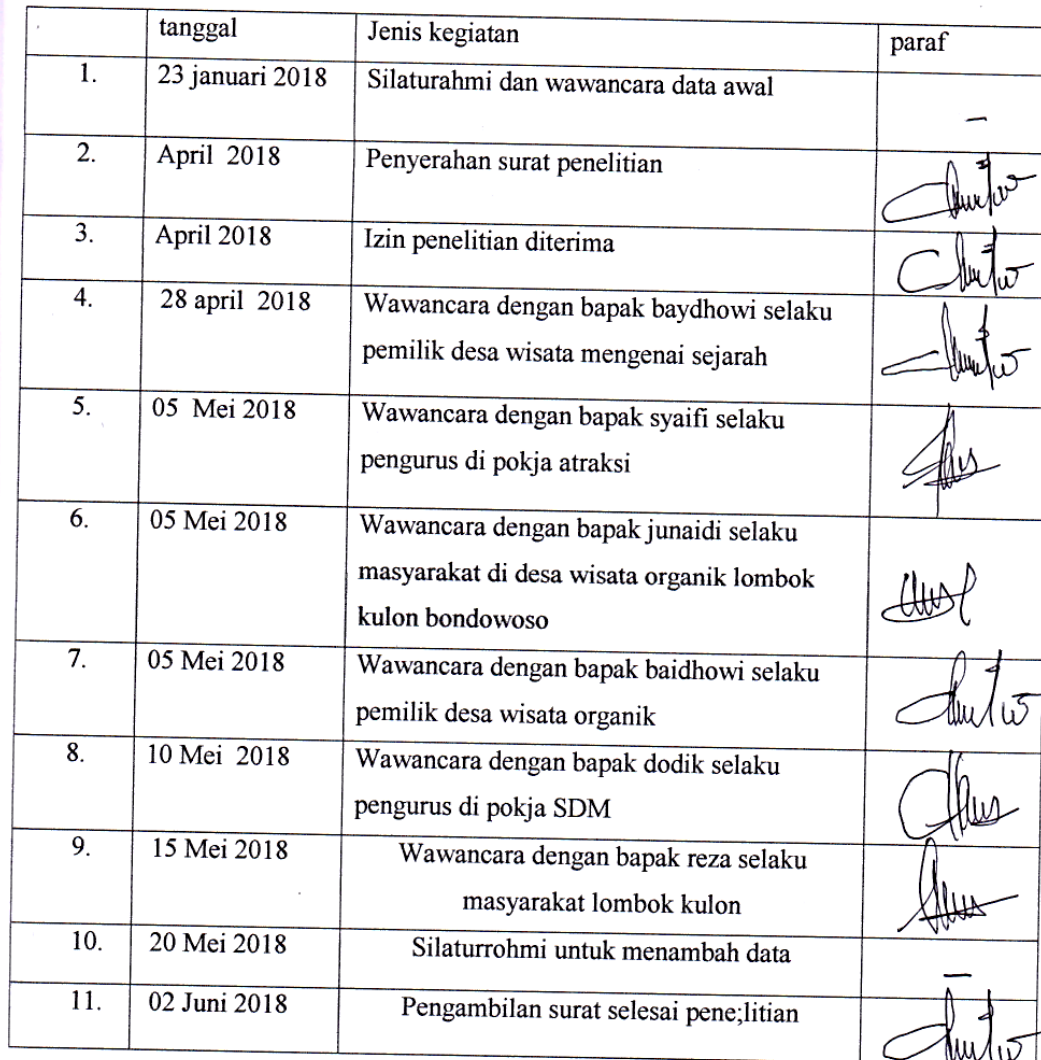 tanggal Jenis kegiatan paraf
1. 23 januari 2018 Silaturahmi dan wawancara data awal
–
2. April 2018 Penyerahan surat penelitian
3. April 2018 Izin penelitian diterima
4. 28 april 2018 Wawancara dengan bapak baydhowi selaku
pemilik desa wisata mengenai sejarah
5. 05 Mei 2018 Wawancara dengan bapak syaifi selaku
pengurus di pokja atraksi
6. 05 Mei 2018 Wawancara dengan bapak junaidi selaku
masyarakat di desa wisata organik lombok
kulon bondowoso
7. 05 Mei 2018 Wawancara dengan bapak baidhowi selaku
pemilik desa wisata organik
8. 10 Mei 2018 Wawancara dengan bapak dodik selaku
pengurus di pokja SDM
9. 15 Mei 2018 Wawancara dengan bapak reza selaku
masyarakat lombok kulon
10. 20 Mei 2018 Silaturrohmi untuk menambah data
–
11. 02 Juni 2018 Pengambilan surat selesai pene;litian